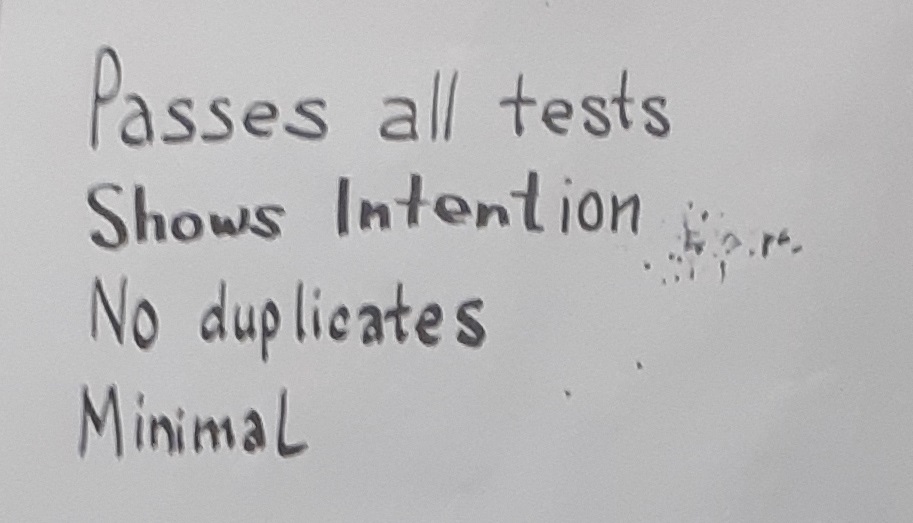 Passes all tests
Shows Intention
No duplicates
Minimal